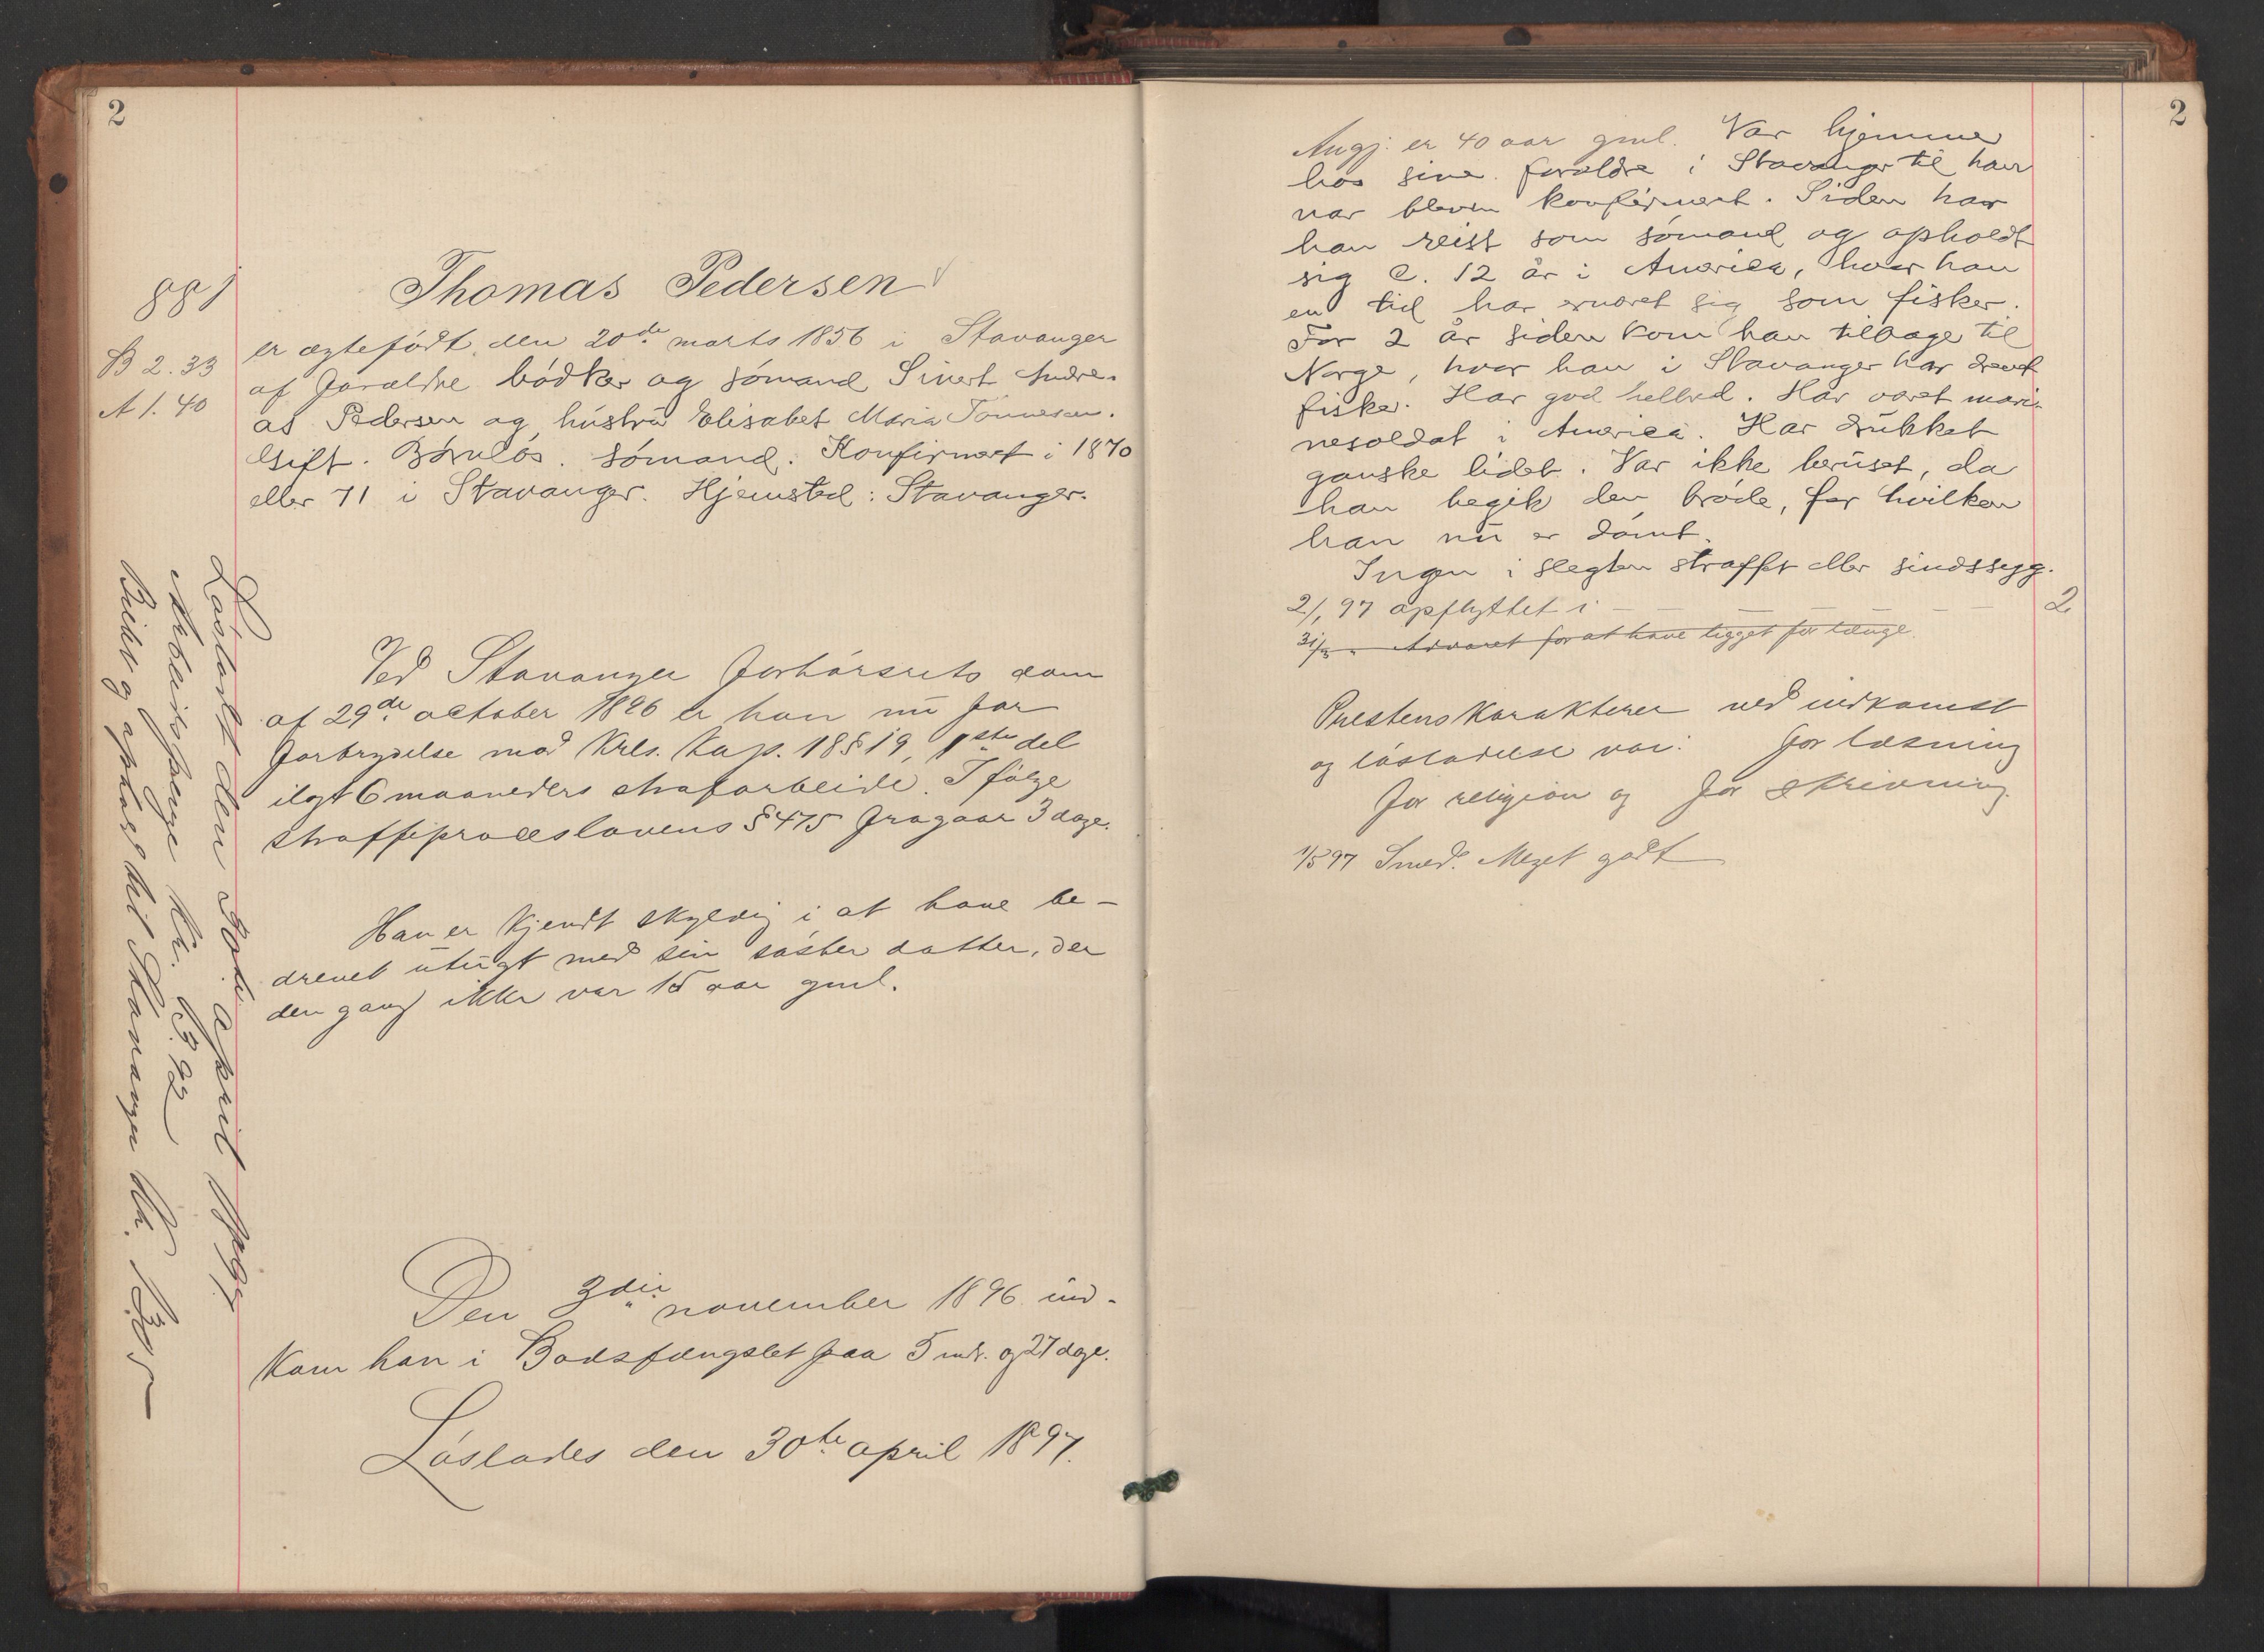 2
881
B 2. 33
A 1. 40
Thomas Pedersen
er ægtefödt den 20de marts 1856 i Stavanger
af forældre bödker og sömand Sivert Andre-
as Pedersen og hüstrü Elisabet Maria Tönnesen.
Gift. Börnlös. Sömand. Konfirmert i 1870
eller 71 i Stavanger. Hjemsted: Stavanger.
Ved Stavanger forhörsrets dom
af 29de october 1896 er han nü for
forbrydelse mod Krls. Kap. 18 § 19, 1ste del
ilagt 6 maaneders strafarbeide. Ifölge
straffeproceslovens § 475 fragaar 3 dage.
Han er kjendt skyldig i at have be-
drevet ütügt med sin söster datter, der
den gang ikke var 15 aar gml.
Den 3die november 1896 ind-
kom han i Bodsfængslet paa 5 mdr. og 27 dage.
Löslades den 30te april 1897.
Lösladt den 30te april 1897
Arbeidspenge Kr. 13.92
Billet og ophold til Stavanger Kr.
2
Angj: er 40 aar gml. Var hjemme
hos sine forældre i Stavanger til han
var bleven konfirmert. Siden har
han reist som sömand og opholdt
sig c. 12 år i America, hvor han
en tid har ernæret sig som fisker.
For 2 år siden kom han tilbage til
Norge, hvor han i Stavanger har drevet
fiske. Har god helbred. Har været mari-
nesoldat i America. Har drükket
ganske lidet. Var ikke berüset, da
han begik den bröde, for hvilken
han nü er dömt.
Ingen i slegten straffet eller sindssyg.
2/1 97 opflyttet i — — — — — — 2
31/3 " Advaret for at have ligget for længe.
Prestens karakterer ved indkomst
og lösladelse var: for læsning
for religion og for skrivning.
1/5 97 Smed. Meget godt